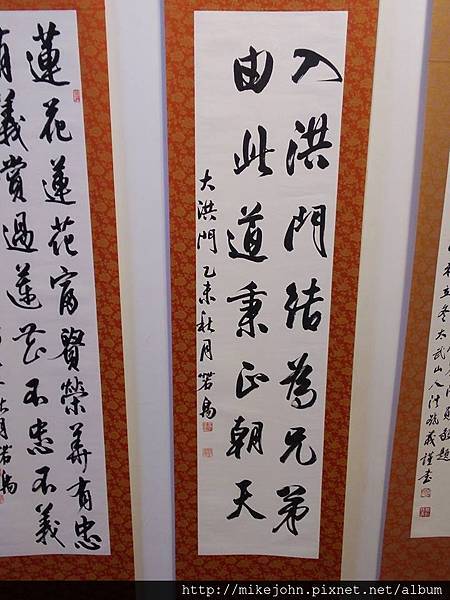 立冬太武山人
義謹書
入洪門結為兄弟
由此道秉正朝天
大洪門乙未秋月若
蓮花蓮花富貴榮華有忠
有義賞過蓮花不忠不義
月若
http://mikejohn.pixnet.net/album